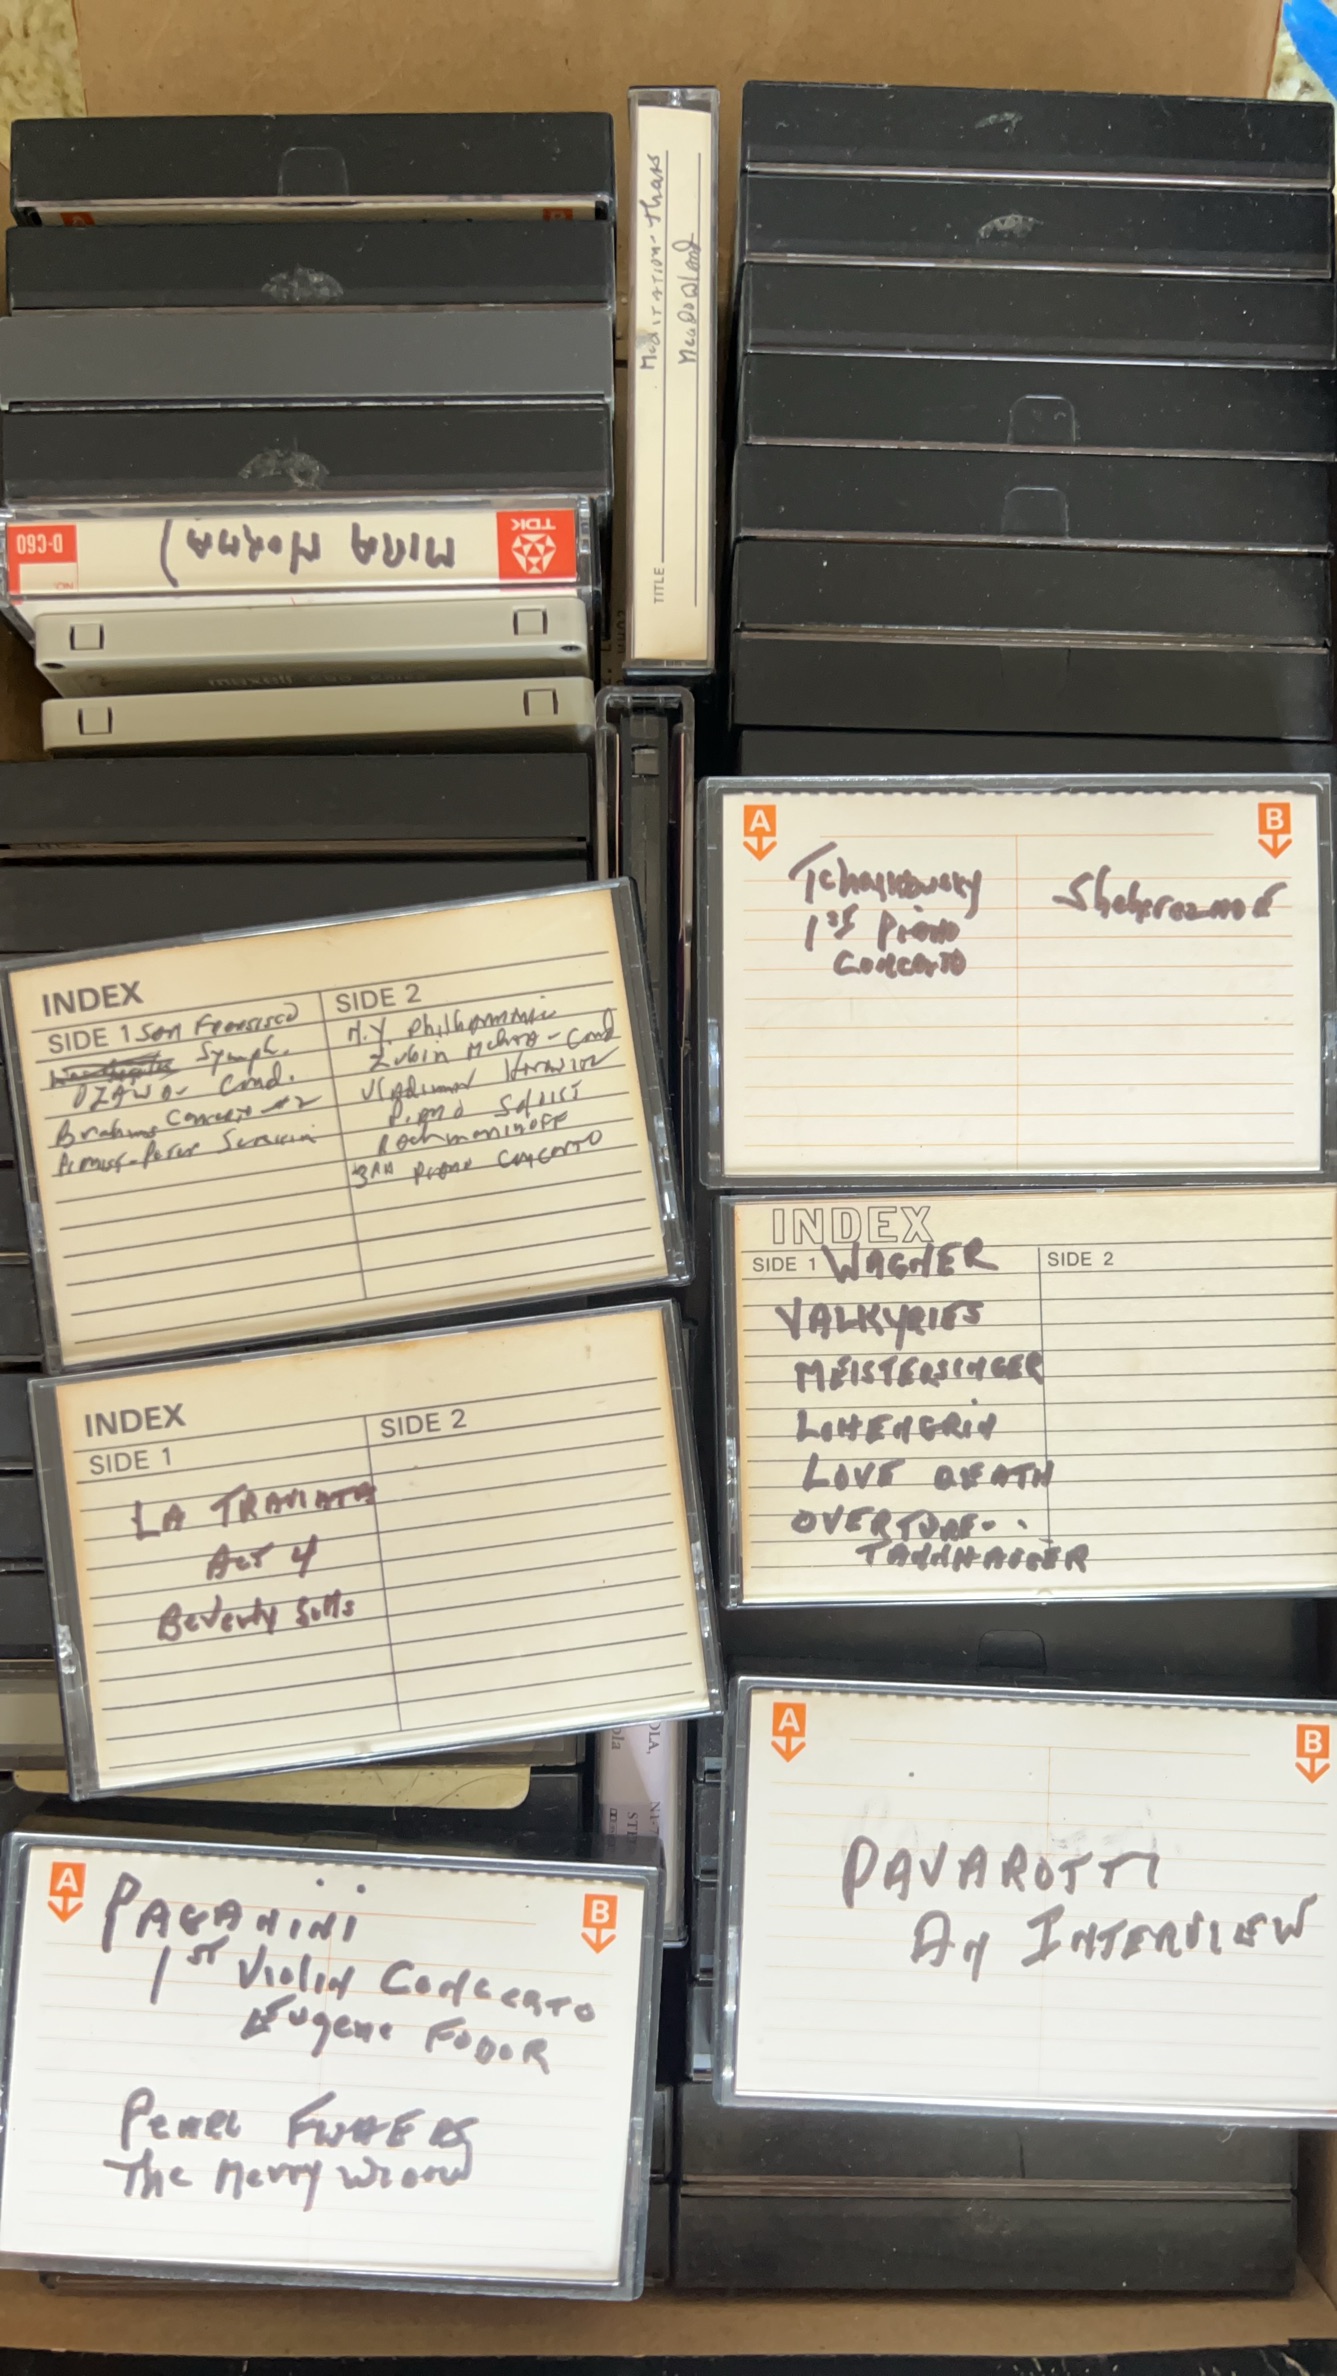 Meditation-Thais
Meadowland
TITLE
TDK
MIRA NORMA)
D-C60
NO.
maxell
A
B
Tchaikovsky
1st Piano
Concerto
Sheherezade
INDEX
SIDE 1 San Francisco
Symph.
OZAWA- Cond.
Brahms Concerto #2
SIDE 2
N.Y. Philharmonic
Zubin Mehta-Cond
Vladimir
Piano Soloist
Rachmaninoff
3RD PIANO CONCERTO
INDEX
SIDE 1 WAGNER
SIDE 2
VALKYRIES
MEISTERSINGER
LOHENGRIN
LOVE DEATH
OVERTURE--
INDEX
SIDE 1
SIDE 2
LA TRAVIATA
Act 4
Beverly Sills
A
B
PAVAROTTI
An INTERVIEW
OLA,
ola
STE
A
B
PAGANINI
1ST Violin CONCERTO
Eugene FODOR
PEARL
The Merry Widow